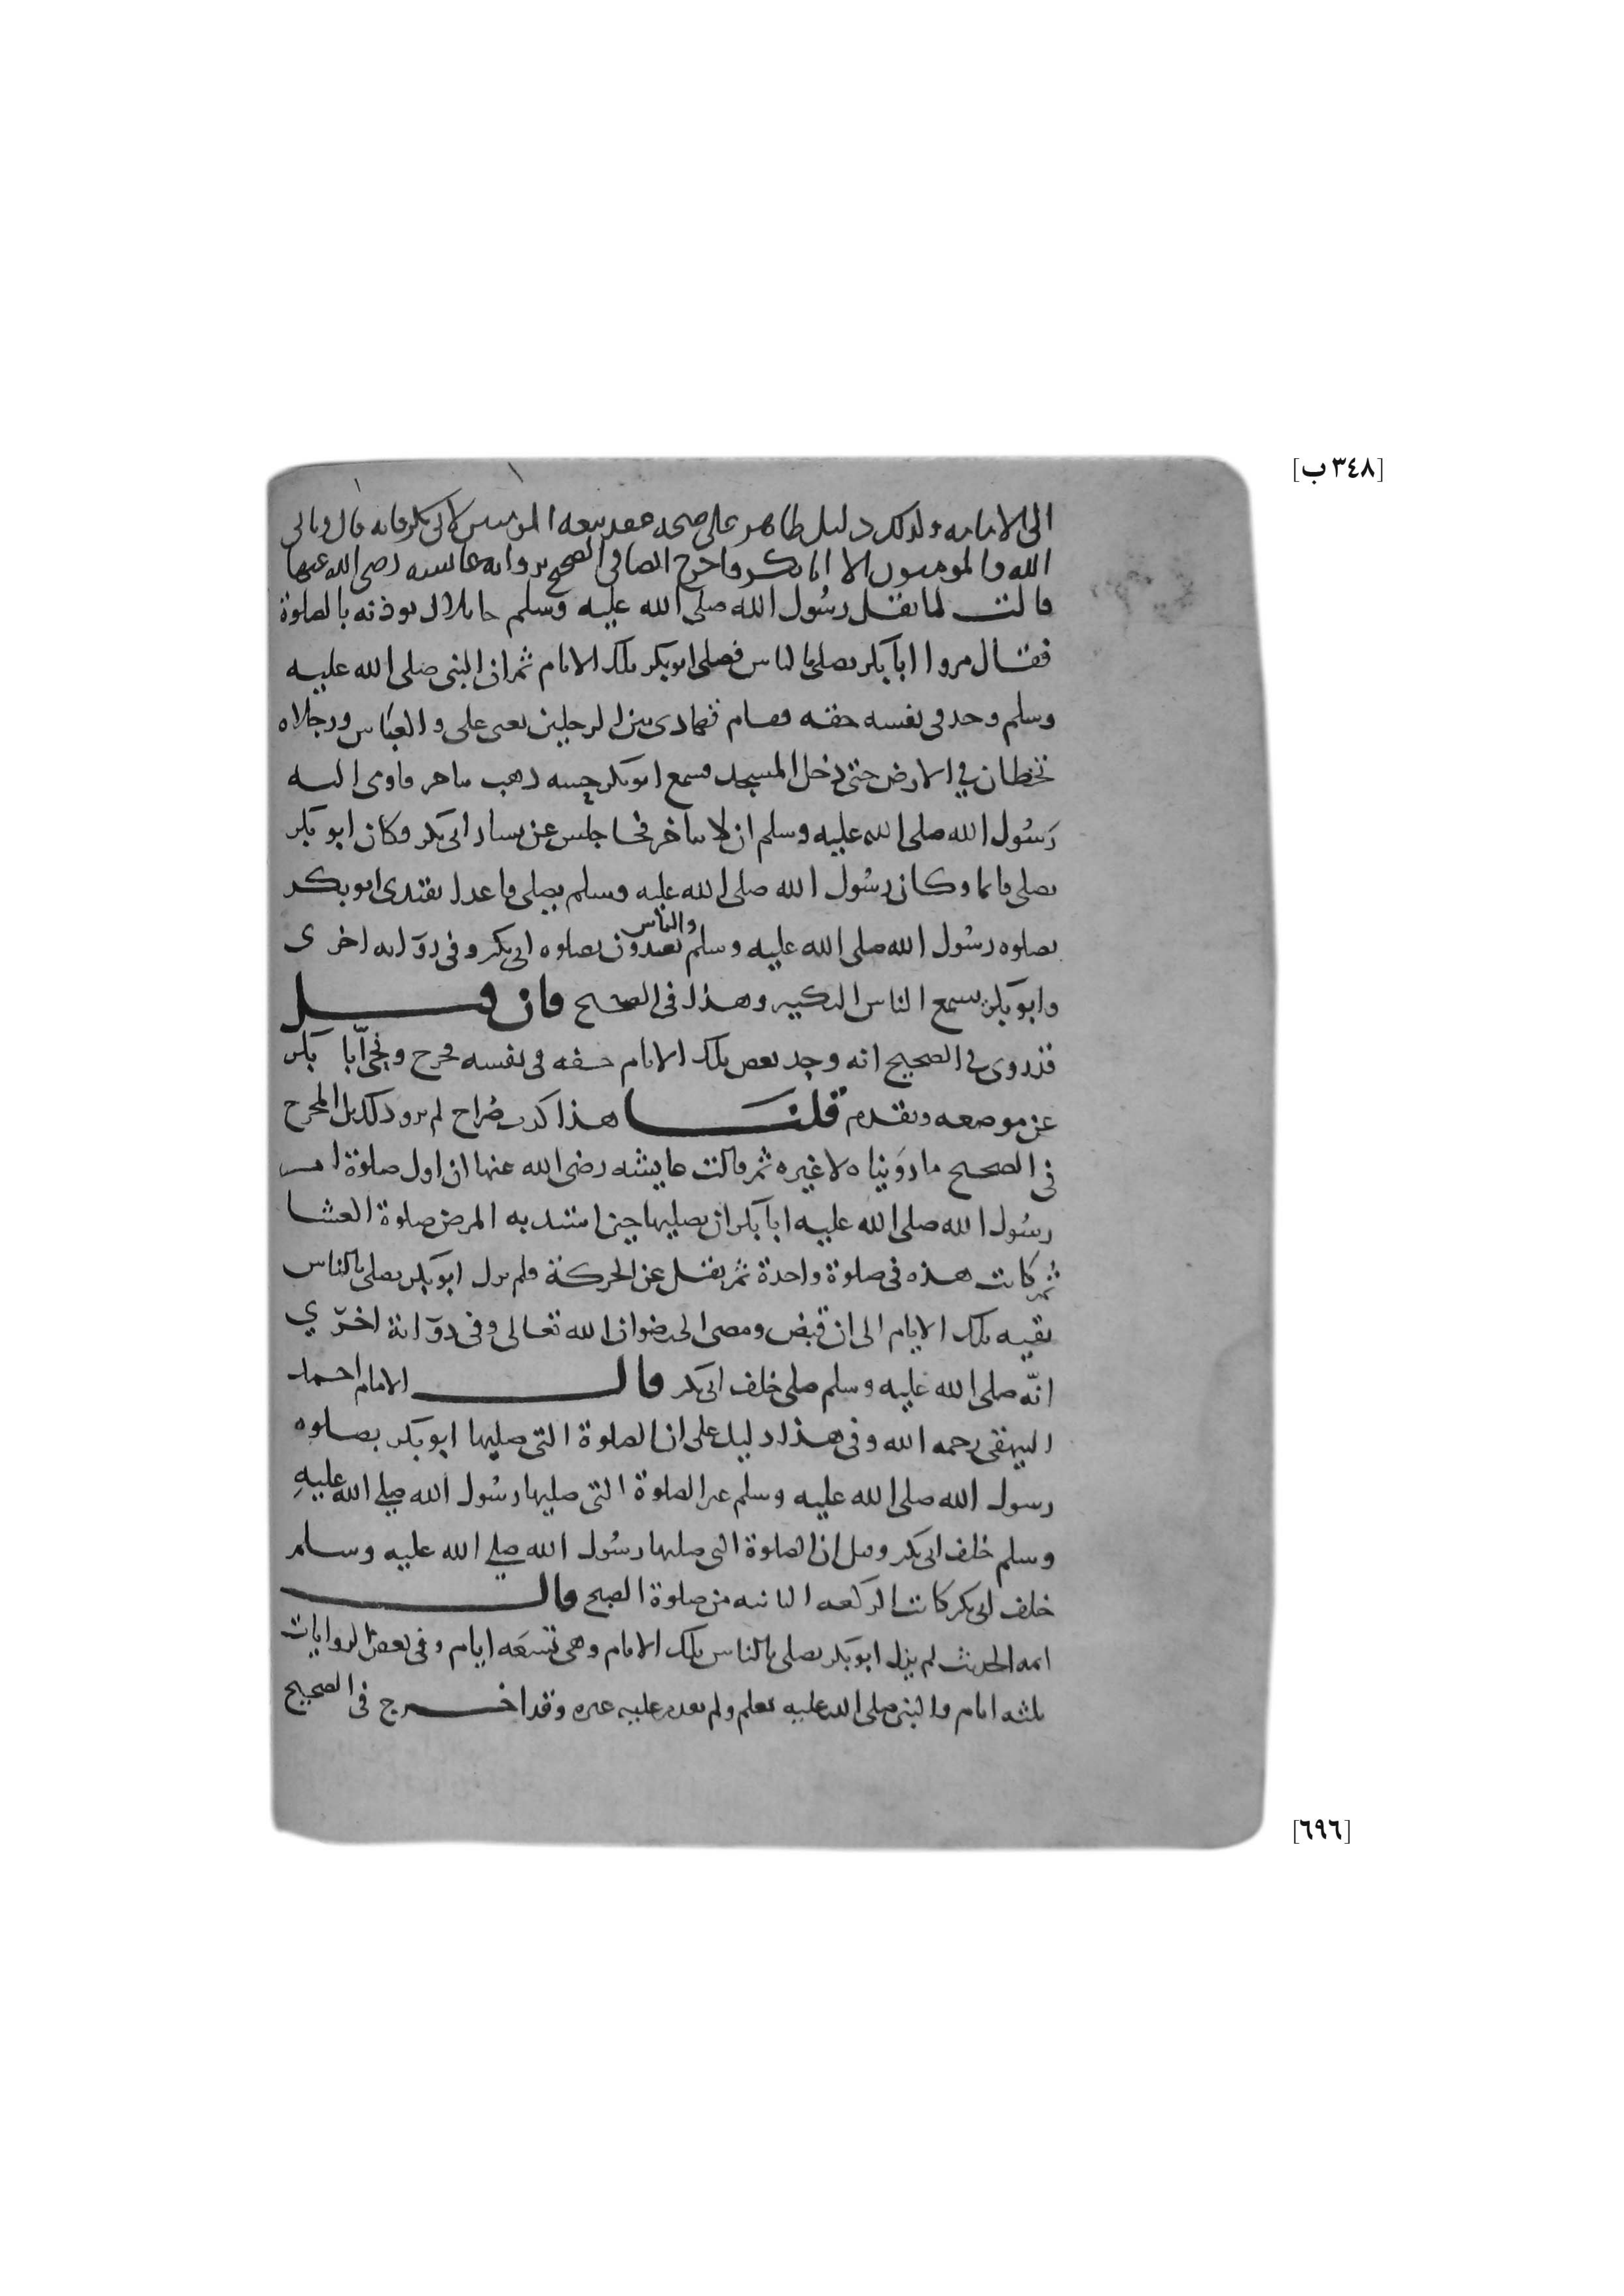 [٣٤٨ ب]
الى الامامه ولذلك دليل ظاهر على صحه عقد بيعه المومنين لابى بكر فانه قال ويابى
الله والمومنون الا ابا بكر واخرج ايضا فى الصحيح بروايه عايشه رضى الله عنها
قالت لما ثقل رسُول الله صلى الله عليه وسلم جا بلال يوذنه بالصلوة
فقال مروا ابا بكر يصلى بالناس فصلى ابو بكر تلك الايام ثم ان النبى صلى الله عليه
وسلم وجد فى نفسه خفه فقام تهادى بين الرجلين يعنى على والعباس ورجلاه
تخطان في الارض حتى دخل المسجد فسمع ابو بكر حسه ذهب يتاخر فاومى اليه
رسُول الله صلى الله عليه وسلم ان لا يتاخر فجا جلس عن يسار ابى بكر وكان ابو بكر
يصلى قايما وكان رسُول الله صلى الله عليه وسلم يصلى قاعدا يقتدى ابو بكر
بصلوه رسُول الله صلى الله عليه وسلم والناس يقتدون بصلوه ابى بكر وفى روايه اخرى
وابو بكر يسمع الناس التكبير وهذا فى الصحيح فان قيل
قد روى في الصحيح انه وجد بعض تلك الايام خفه فى نفسه فخرج ونحى ابا بكر
عن موضعه وتقدم قلنا هذا كذب صُراح لم يرو ذلك بل المخرج
فى الصحيح ما روَيناه لا غيره ثم قالت عايشه رضى الله عنها ان اول صلوة امر
رسُول الله صلى الله عليه ابا بكر ان يصليها حين اشتد به المرض صلوة العشا
ثم كانت هذه فى صلوة واحدة ثم ثقل عن الحركة فلم يزل ابو بكر يصلى بالناس
بقيه تلك الايام الى ان قبض ومضى الى رضوان الله تعالى وفى رواية اخرى
انّه صلى الله عليه وسلم صلى خلف ابى بكر قال الامام احمد
البيهقى رحمه الله وفى هذا دليل على ان الصلوة التى صليها ابو بكر بصلوه
رسول الله صلى الله عليه وسلم غير الصلوة التى صليها رسُول الله صلى الله عليهِ
وسلم خلف ابى بكر وقيل ان الصلوة التى صليها رسُول الله صلى الله عليه وسلم
خلف ابى بكر كانت الركعه الثانيه من صلوة الصبح قال
ايمه الحديث لم يزل ابو بكر يصلى بالناس تلك الايام وهى تسعَه ايام وفى بعض الروايات
ثلثه ايام والنبى صلى الله عليه يعلم ولم يقدم عليه غيره وقد اخرج فى الصحيح
[٦٩٦]